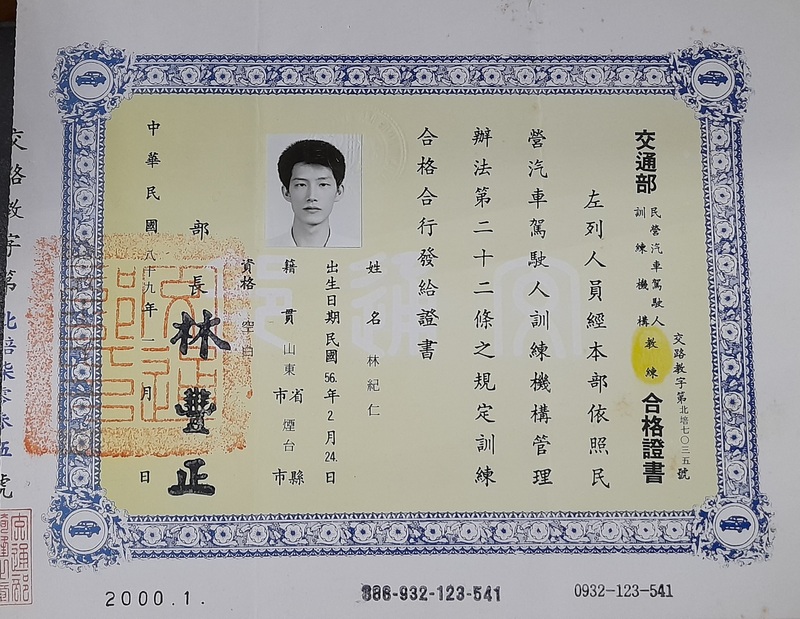 交通部
民營汽車駕駛人
訓練機構
教練
合格證書
交路教字第北培七〇三五號
左列人員經本部依照民
營汽車駕駛人訓練機構管理
辦法第二十二條之規定訓練
合格合行發給證書
姓名 林紀仁
出生日期民國56.年2月24.日
籍貫 山東省 煙台縣
市 市
資格 空白
部長 林豐正
中華民國八十九年一月 日
交路教字第北培柒零參伍號
2000.1.
886-932-123-541
0932-123-541